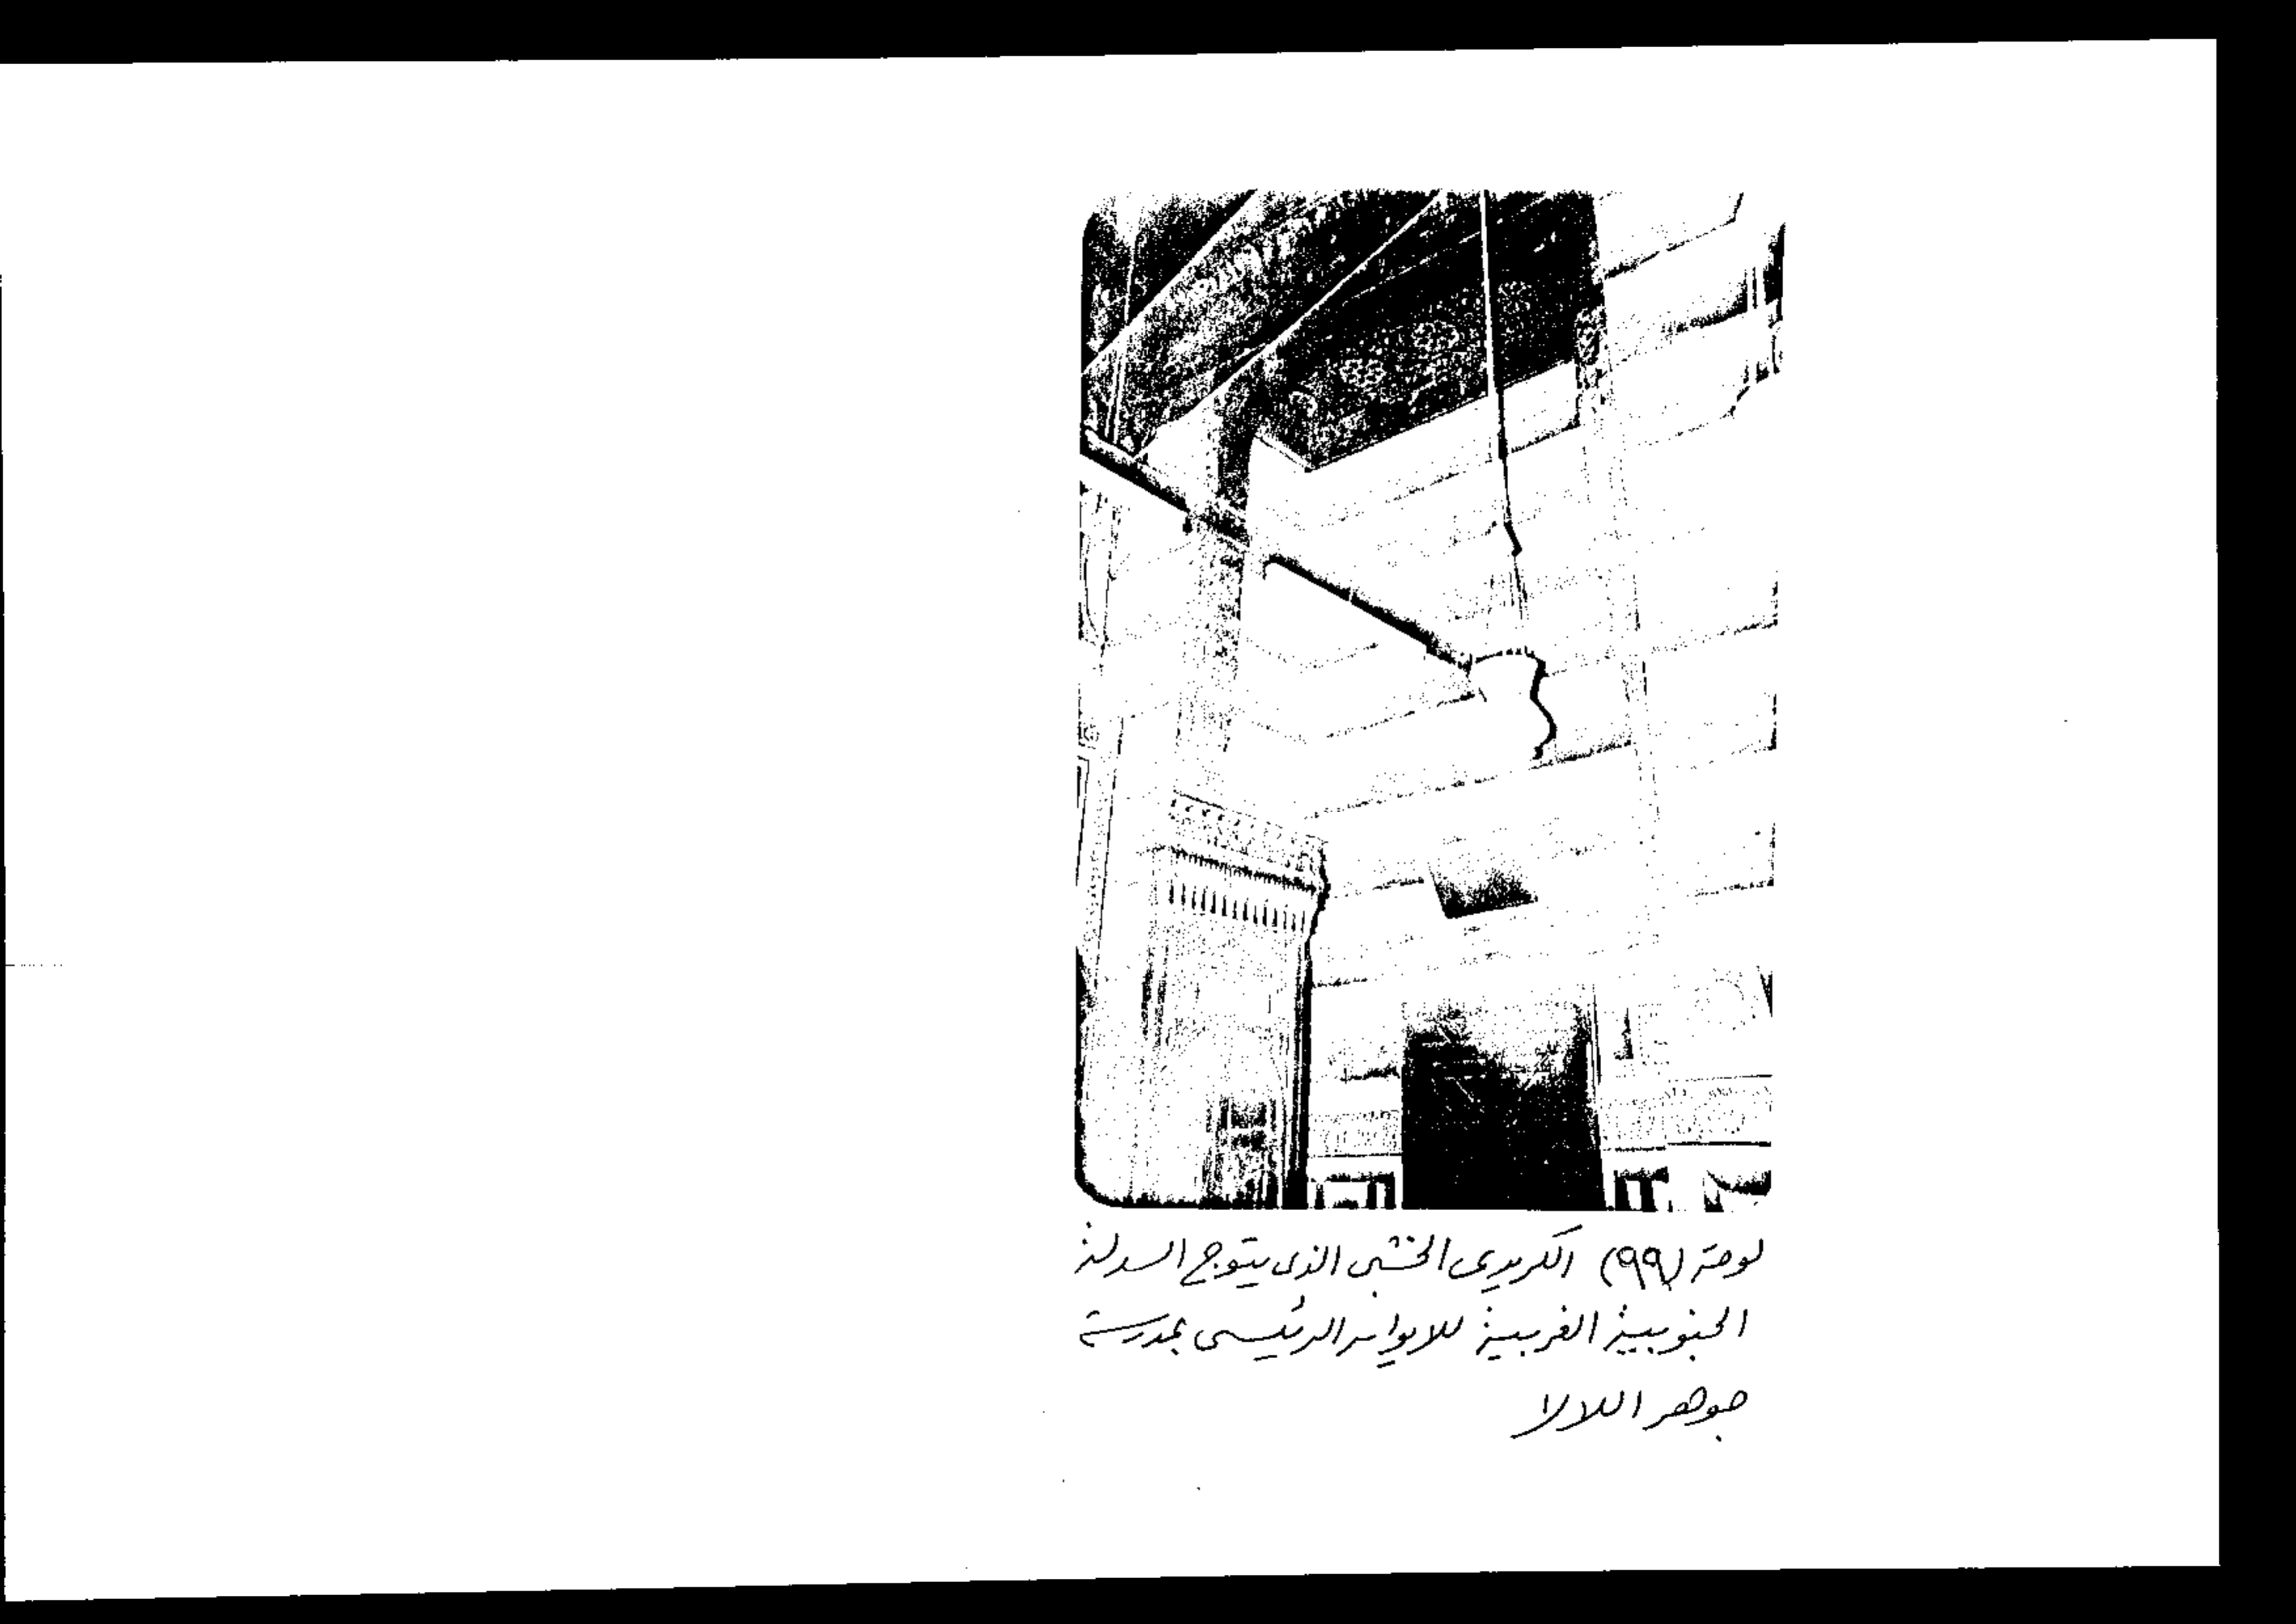 لوحة (٩٩) الكريدى الخشبى الذى يتوج السدلة
الجنوبية الغربية للايوان الرئيسى بمدرسة
جوهر اللالا